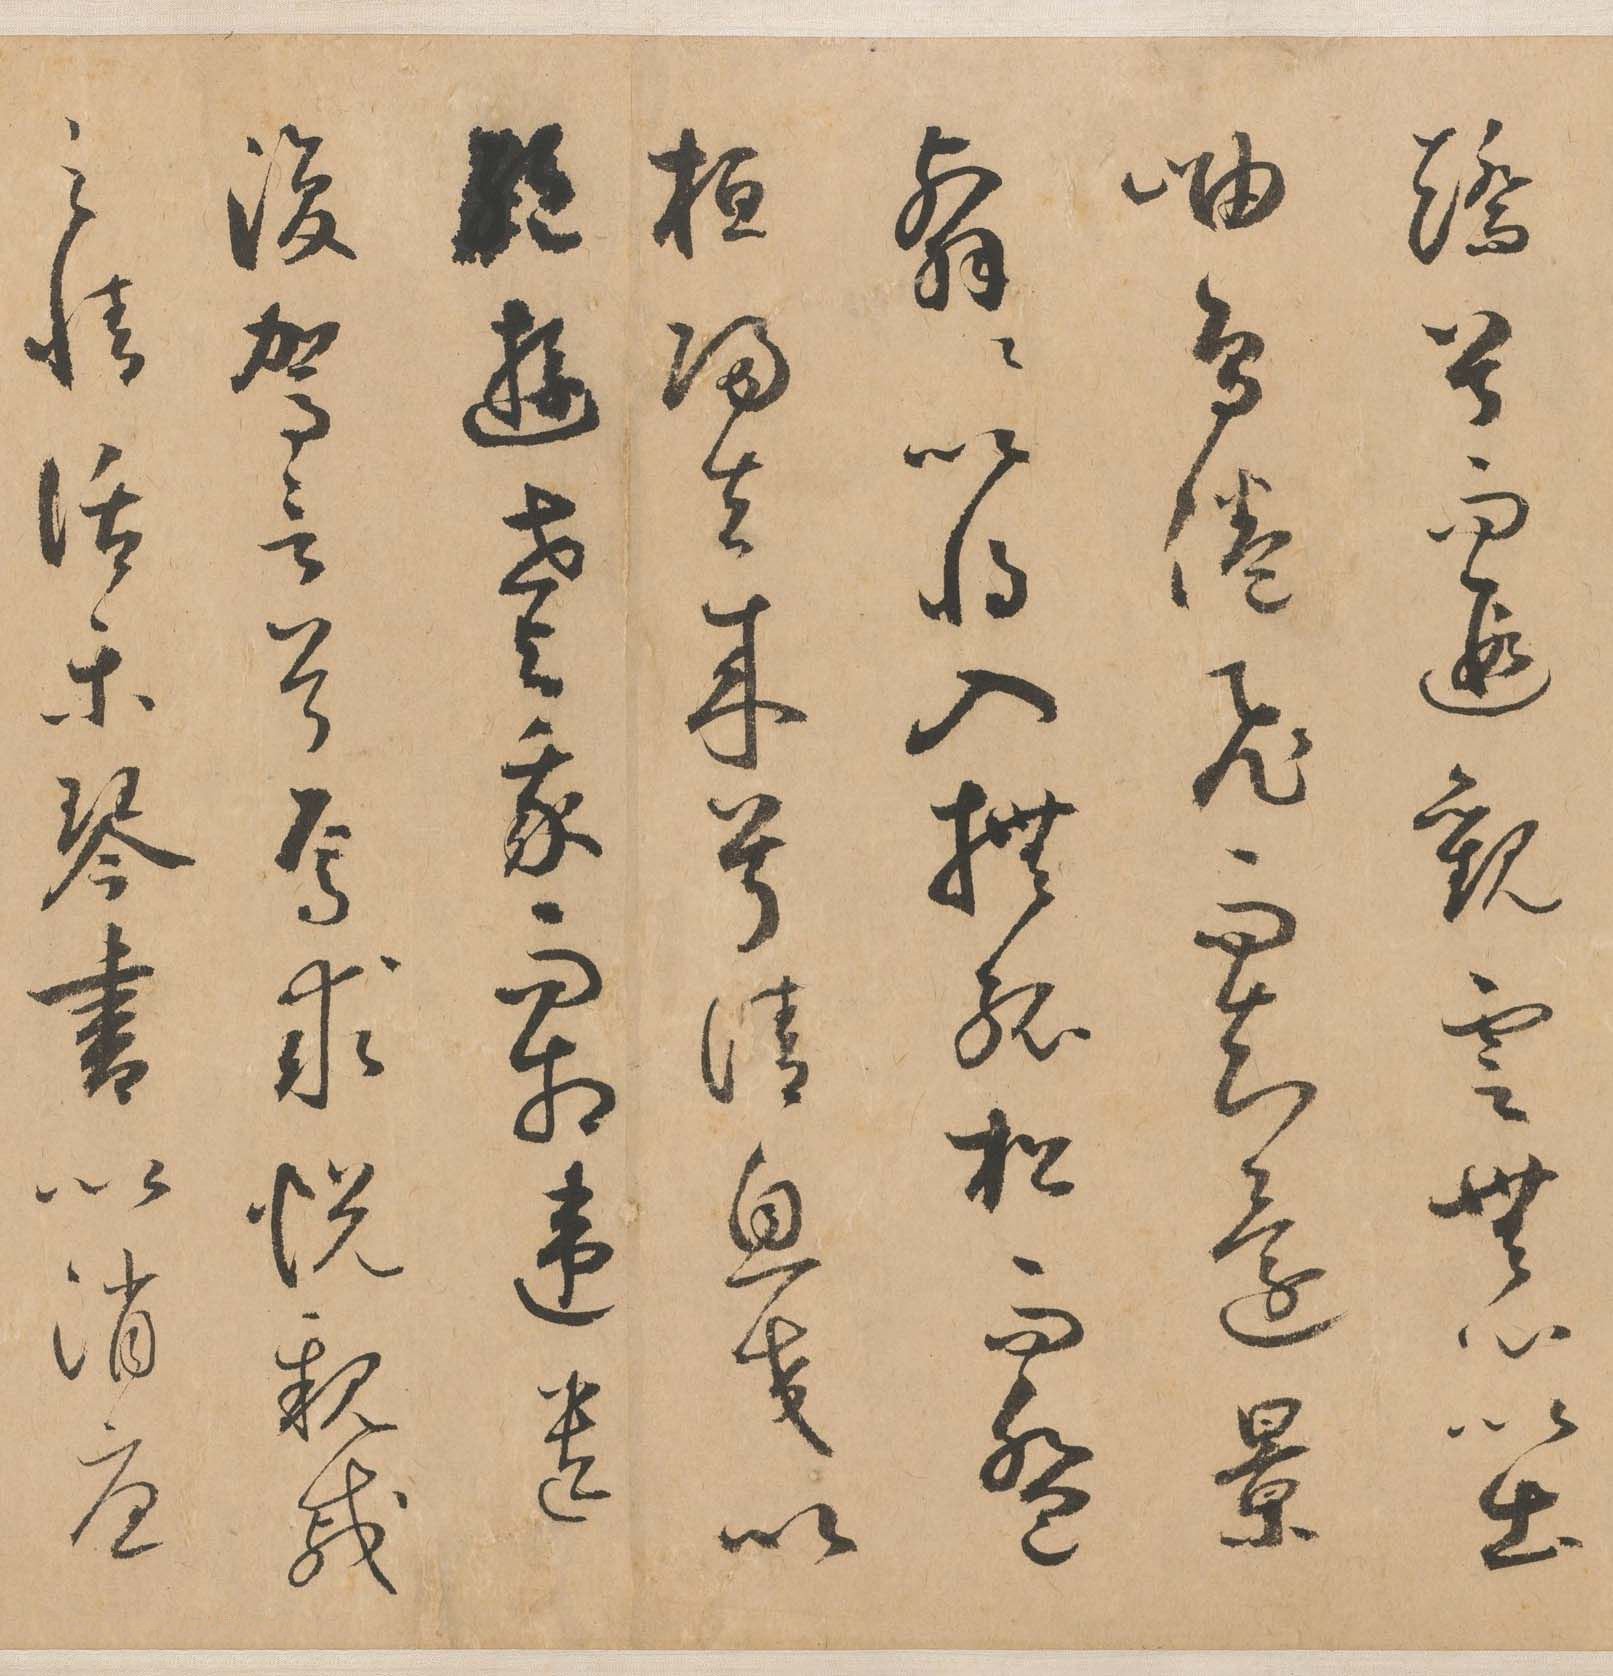 矯首而遐觀雲無心以出
岫鳥倦飛而知還景
翳々以將入撫孤松而盤
桓歸去來兮請息交以
絕遊世與我而相違遺
復駕言兮焉求悅親戚
之情話樂琴書以消憂